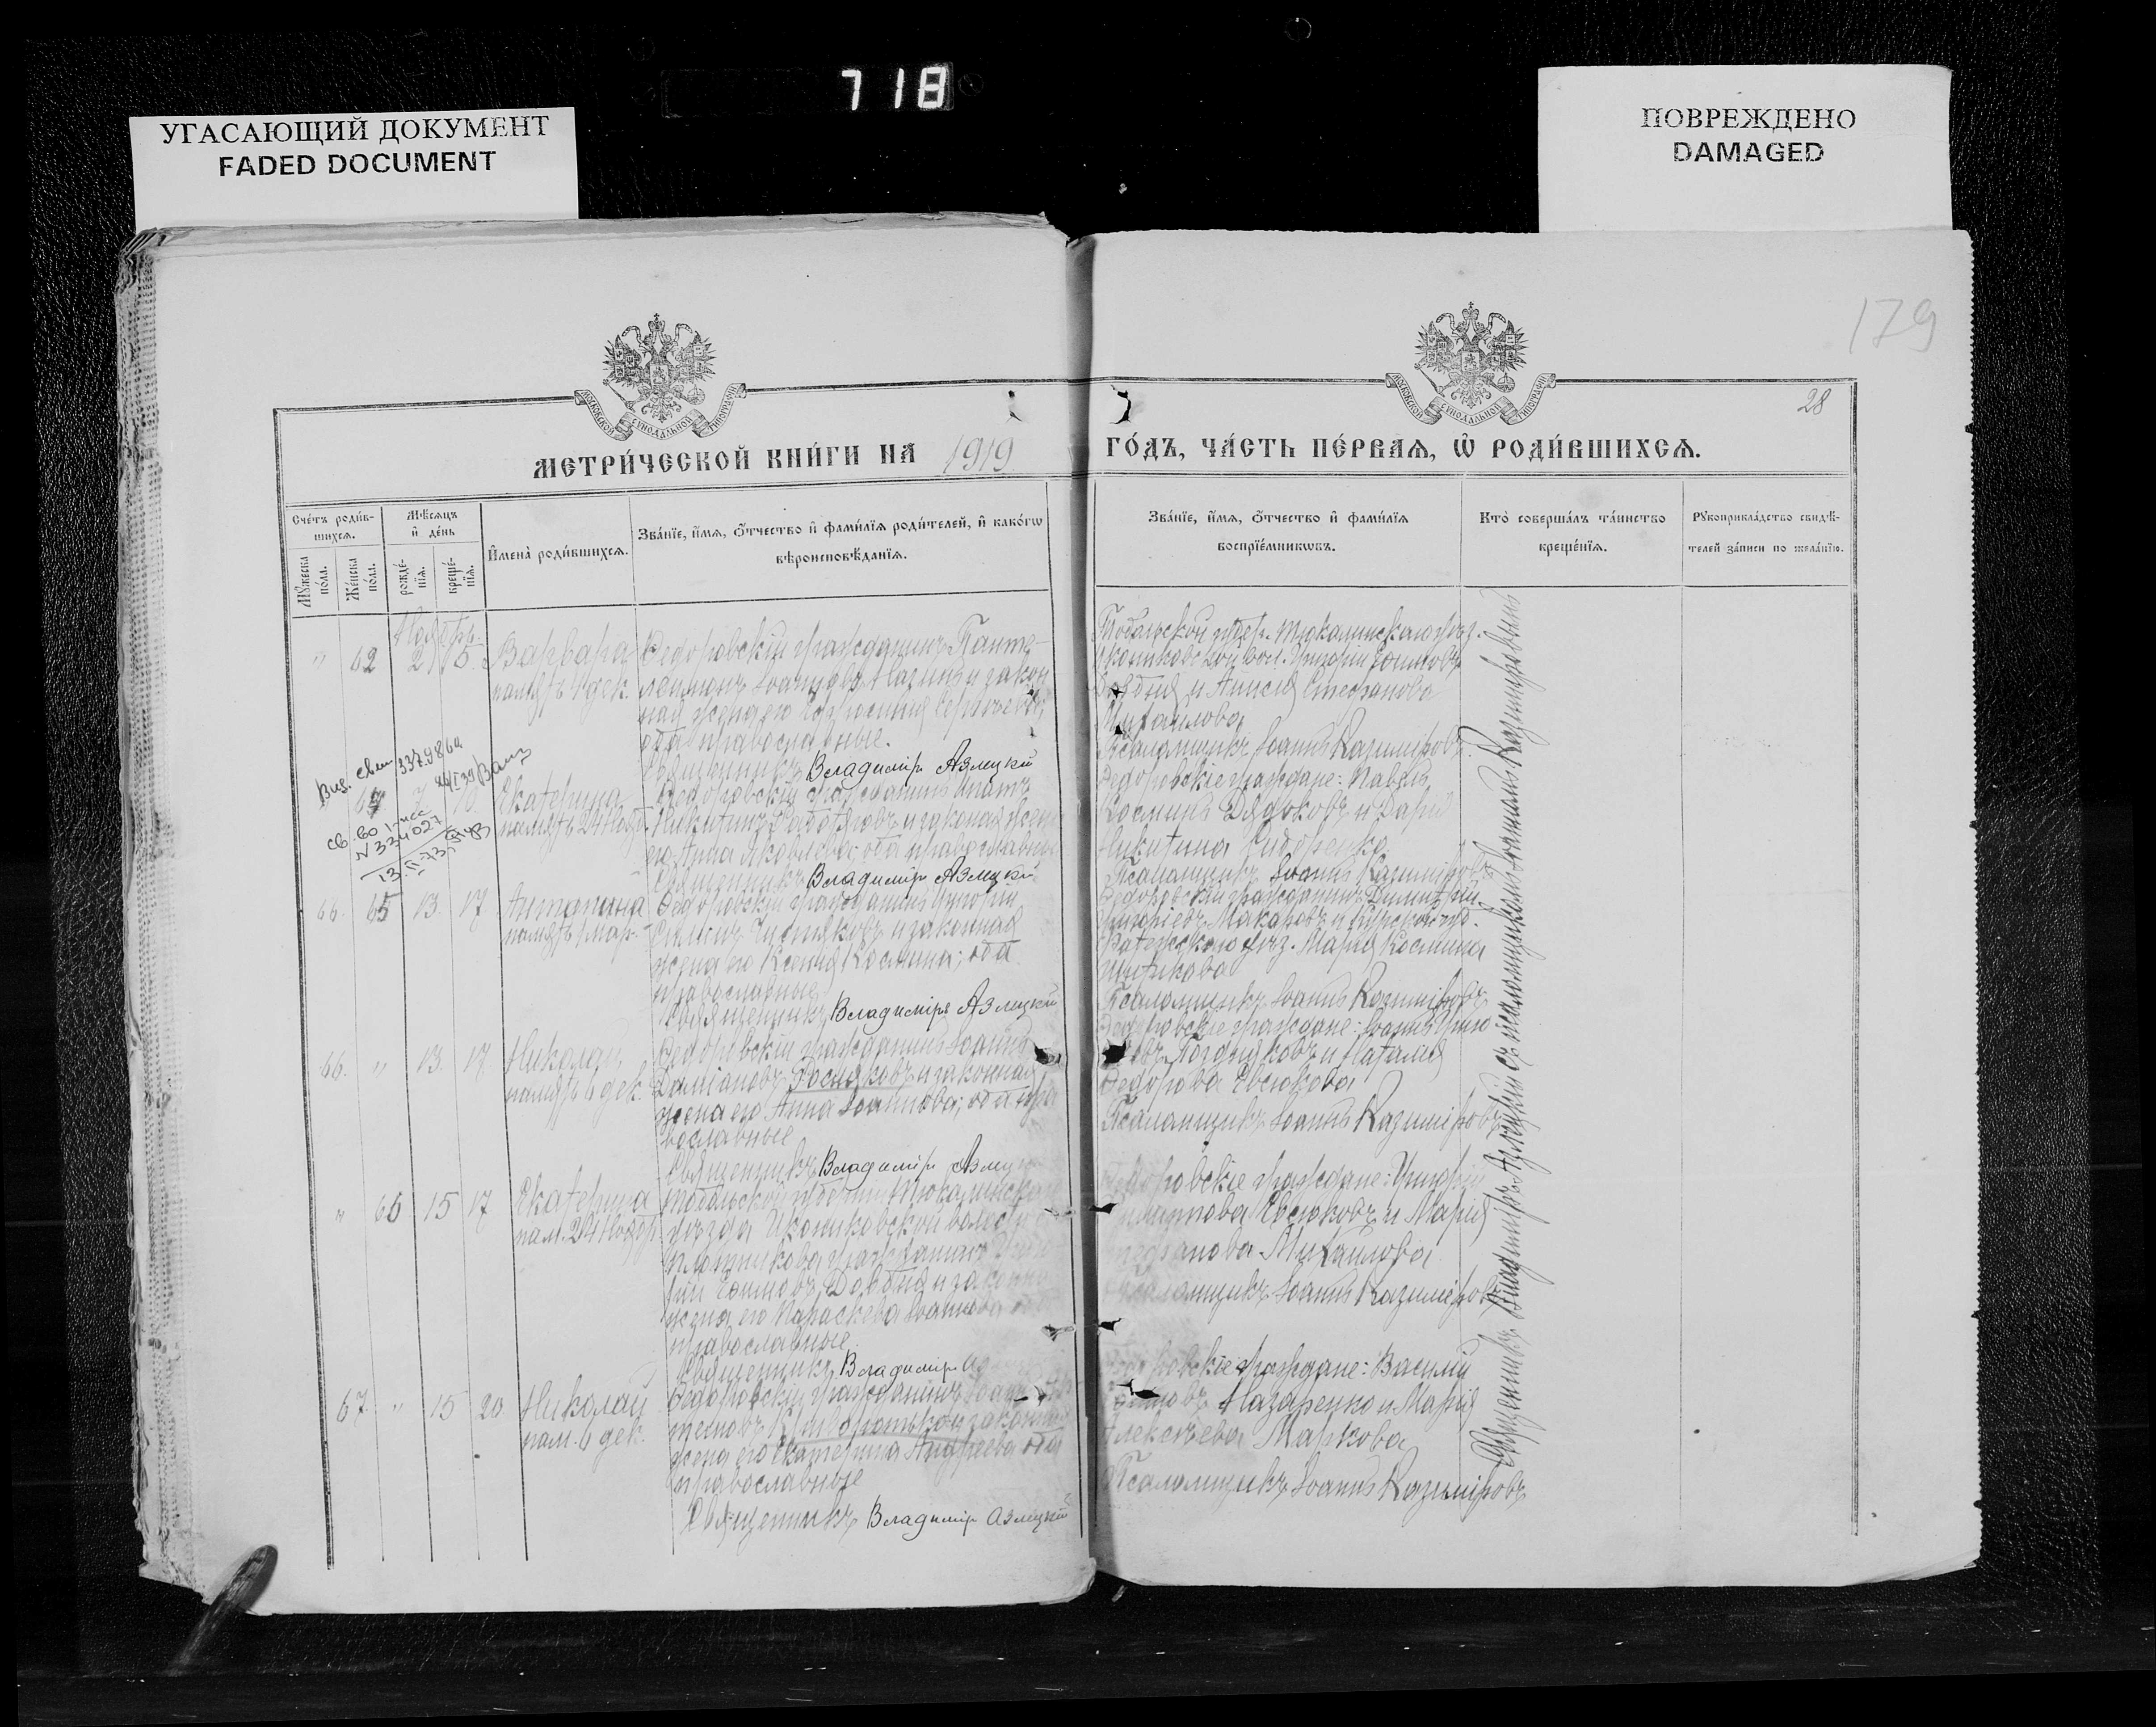 718
УГАСАЮЩИЙ ДОКУМЕНТ
FADED DOCUMENT
ПОВРЕЖДЕНО
DAMAGED
179
28
МОСКОВСКОЙ СѴНОДАЛЬНОЙ ТИПОГРАФІИ
МОСКОВСКОЙ СѴНОДАЛЬНОЙ ТИПОГРАФІИ
МЕТРИ́ЧЕСКОЙ КНИ́ГИ НА 1919
ГО́ДЪ, ЧА́СТЬ ПЕ́РВАЯ, Ѡ҆ РОДИ́ВШИХСЯ.
Сче́тъ роди́в-
шихся.
Мꙋ́жеска
по́ла.
Же́нска
по́ла.
Мѣ́сяцъ
и҆ де́нь
рожде́-
нїя.
креще́-
нїя.
И҆мена̀ роди́вшихся.
Зва́нїе, и҆́мя, ѻ҆́тчество и҆ фами́лїя роди́телей, и҆ како́гѡ
вѣроисповѣ́данїя.
Зва́нїе, и҆́мя, ѻ҆́тчество и҆ фами́лїя
воспрїе́мникѡвъ.
Кто̀ соверша́лъ та́инство
креще́нїя.
Рꙋкоприкла́дство свидѣ́-
телей за́писи по жела́нїю.
Ноября
" 62 2 15. Варвара
память 4 дек.
Федоровскій гражданинъ Панте-
леимонъ Іоанновъ и закон
ная жена его Сергіева;
оба православные.
Священникъ Владиміръ Азлецкій
Тобольской губер. Тюкалинскаго уѣз.
Иконниковской вол. Григорій Ефимовъ
Довбня и Анисія Стефанова
Михайлова
Псаломщикъ Іоаннъ Казиміровъ
Выд. свид. 337986
Св-во
N 334027
13.II-73
Екатерина
память 24 Нояб.
Федоровскій гражданинъ
Никитинъ и законная жена
его Анна Яковлева; оба православные
Священникъ Владиміръ Азлецкій
Федоровскіе граждане: Павелъ
Косминъ Дядюковъ и Дарія
Никитина Сидоренко
Псаломщикъ Іоаннъ Казиміровъ
66. 65 13. 17 Антонина
память 1 мар.
Федоровскій гражданинъ Григорій
и законная
жена его Ксенія Космина; оба
православные
Священникъ Владиміръ Азлецкій
Федоровскій гражданинъ Димитрій
Григорьевъ Макаровъ и Курской губ.
уѣз. Марія Космина
Псаломщикъ Іоаннъ Казиміровъ
66. " 13. 17. Николай
память 6 дек.
Федоровскій гражданинъ Іоаннъ
Даміановъ Посняковъ и законная
жена его Анна Іоаннова; оба пра
вославные
Священникъ Владиміръ Азлецкій
Федоровскіе граждане: Іоаннъ
Поздняковъ и Наталія
Федорова Евсюкова
Псаломщикъ Іоаннъ Казиміровъ
" 66 15 17 Екатерина
пам. 24 Ноября
Тобольской губерніи Тюкалинскаго
уѣзда Иконниковской волости
гражданинъ
Ефимовъ Довбня и законная
жена его Параскева Іоаннова оба
православные
Священникъ Владиміръ
Федоровскіе граждане: Григорій
Евсюковъ и Марія
Стефанова Михайлова
Псаломщикъ Іоаннъ Казиміровъ
67 " 15 20 Николай
пам. 6 дек.
Федоровскій гражданинъ
и законная
жена его Екатерина Андреева оба
православные
Священникъ Владиміръ Азлецкій
Федоровскіе граждане: Василій
Назаренко и Марія
Алексѣева Маркова
Псаломщикъ Іоаннъ Казиміровъ
Священникъ Владиміръ Азлецкій съ псаломщикомъ Іоанномъ Казиміровымъ